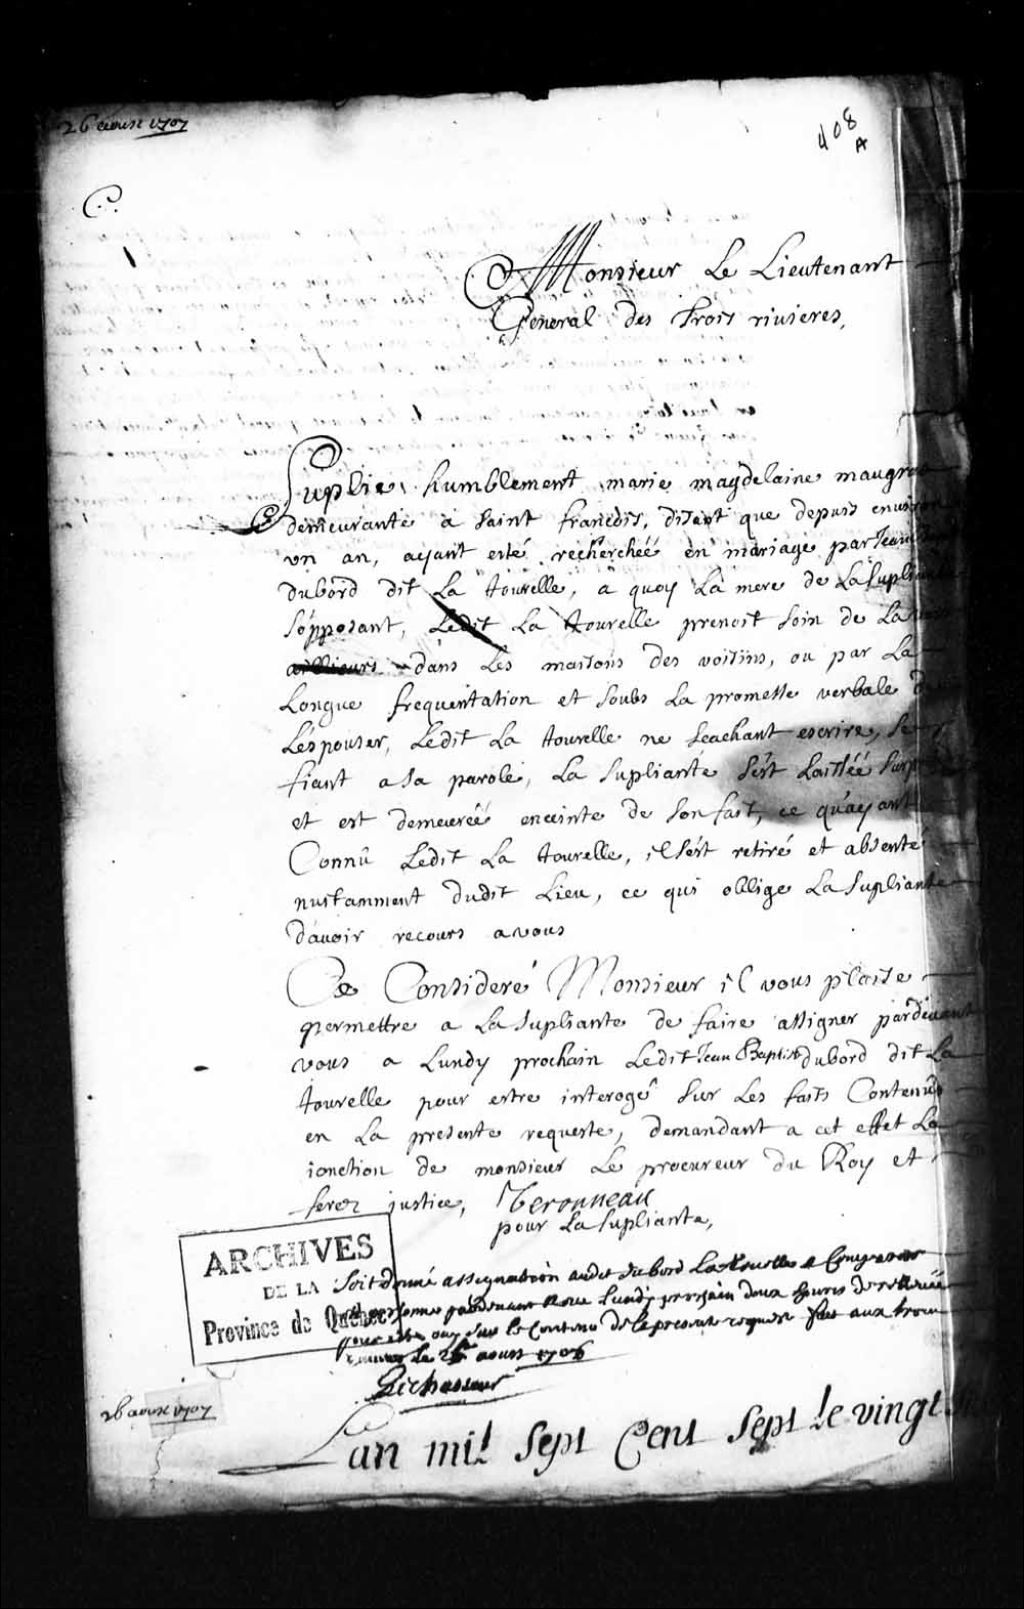 26 aoust 1707
408
A
Monsieur Le Lieutenant
General des trois rivieres,
Suplie humblement marie magdelaine maugras
demeurante a saint francois, disant que depuis environ
un an, ayant esté recherchée en mariage par Jean
dubord dit La tourelle, a quoy La mere de La supliante
s'opposant, Ledit La tourelle prenoit soin de La
dans Les maisons des voisins, ou par La
Longue frequentation et soubs La promesse verbale de
L'espouser, Ledit La tourelle ne scachant escrire, se
fiant a sa parole, La supliante s'est Laissée
et est demeurée enceinte de son fait, ce qu'ayant
Connû Ledit La tourelle, il s'est retiré et absenté
nuitamment dudit Lieu, ce qui oblige La supliante
d'avoir recours a vous
Ce Consideré Monsieur il vous plaise
permettre a La supliante de faire assigner pardevant
vous a Lundy prochain Ledit Jean Baptist dubord dit La
tourelle pour estre interogé sur Les faits Contenus
en La presente requeste, demandant a cet effet La
ionction de monsieur Le procureur du Roy et
ferez justice, Veronneau
pour La supliante,
ARCHIVES
DE LA
Province de Québec
Soit donné assignation audit dubord La tourelle a Comparoir
en personne pardevant nous lundi prochain deux heures de relevée
pour estre ouy sur le Contenu de la presente requeste fait aux trois
rivieres le 26 aoust 1706
26 aoust 1707
L'an mil sept Cent sept le vingt